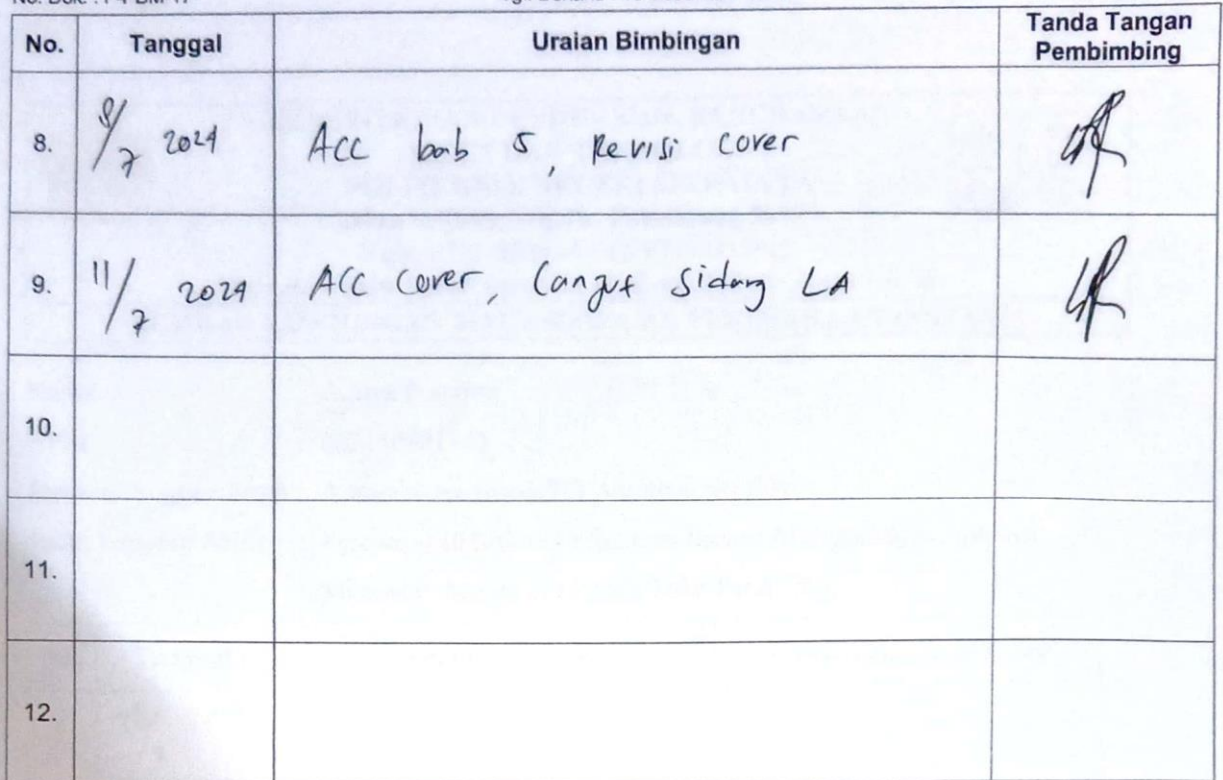 No. Tanggal Uraian Bimbingan Tanda Tangan Pembimbing
8. 8/7 2024 Acc bab 5, Revisi cover
9. 11/7 2024 Acc Cover, Lanjut Sidang LA
10.
11.
12.